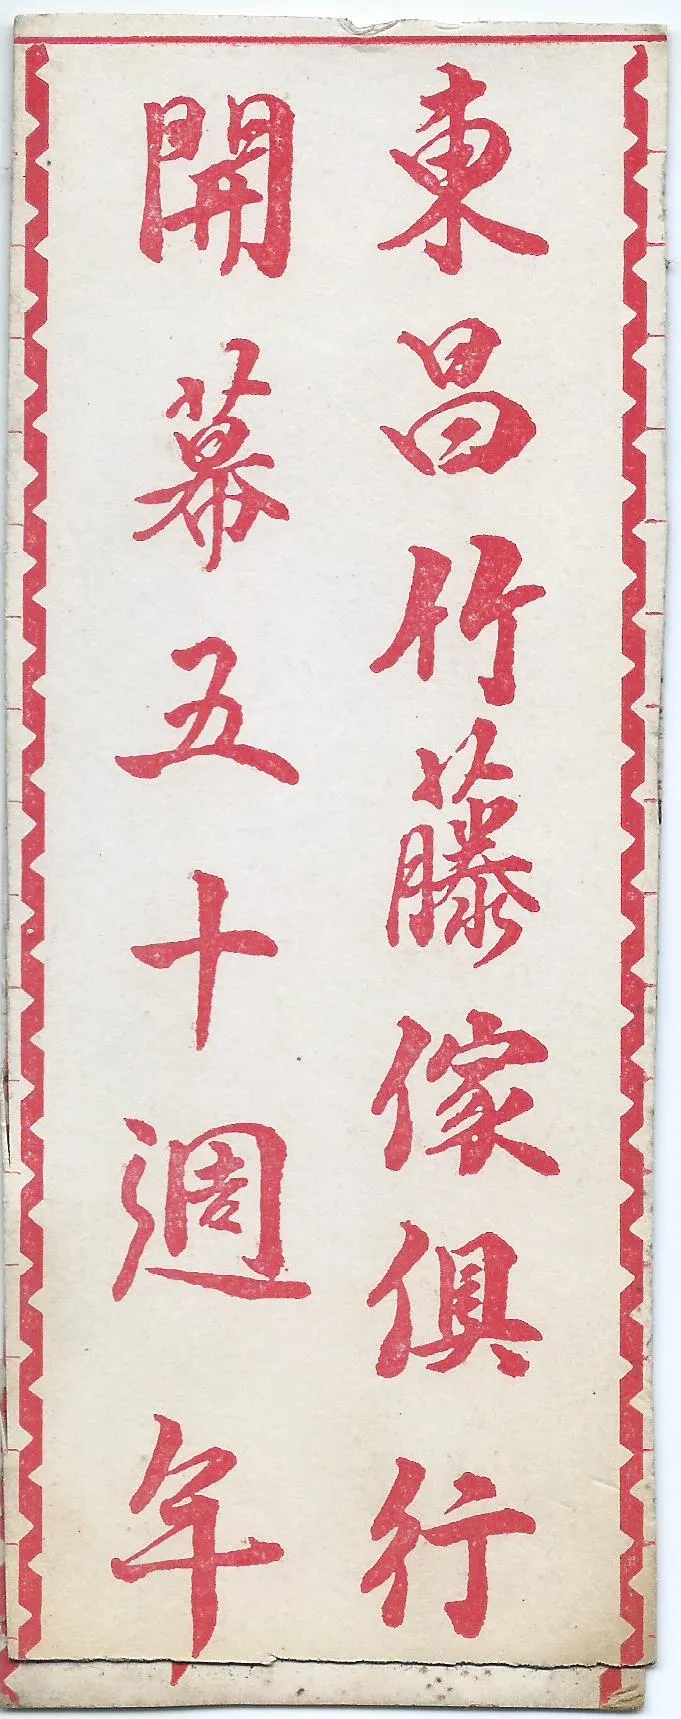 東昌竹藤傢俱行
開幕五十週年